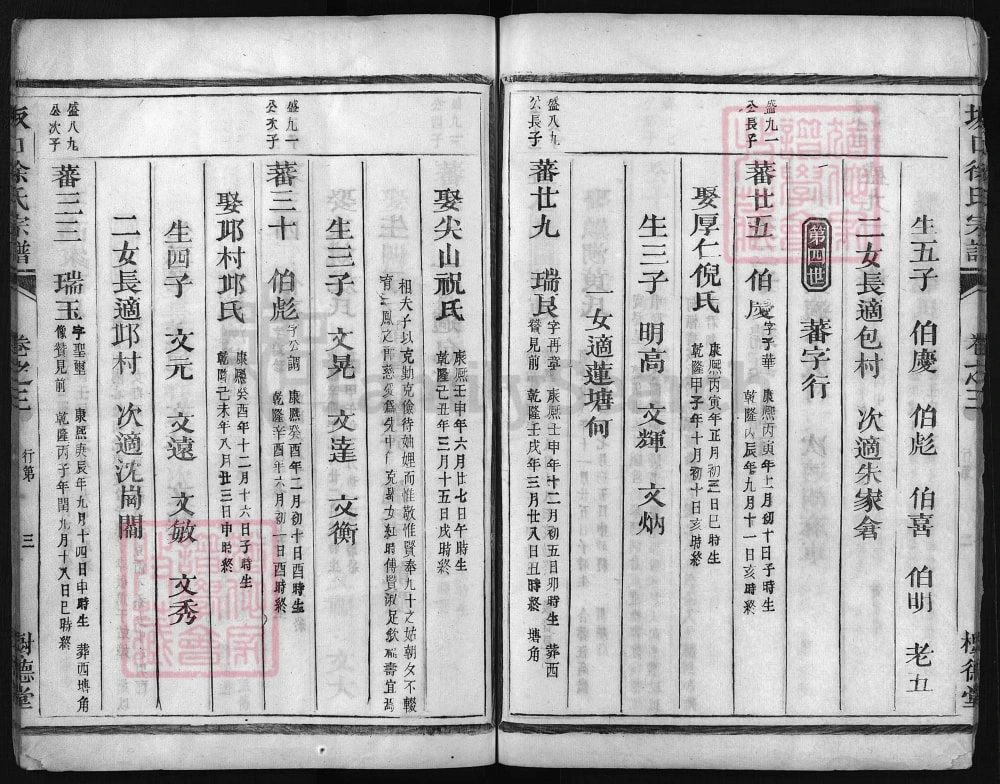 生五子 伯慶 伯彪 伯喜 伯明 老五
二女長適包村 次適朱家倉
第四世 蕃字行
盛九一
公長子
蕃廿五 伯慶 字子華 康熙丙寅年上月初十日子時生
乾隆丙辰年九月十一日亥時終
娶厚仁倪氏 康熙丙寅年正月初三日巳時生
乾隆甲子年十月初十日亥時終
生三子 明高 文輝 文炳
一女適蓮塘何
盛八九
公長子
蕃廿九 瑞良 字再章 康熙壬申年十二月初五日卯時生 葬西
贊見前 乾隆壬戌年三月廿八日丑時終 塘角
娶尖山祝氏 康熙壬申年六月廿七日午時生
乾隆己丑年三月十五日戌時終
相夫子以克勤克儉待妯娌而惟敬惟賢奉九十之姑朝夕不輟
生三子 文晃 文達 文衡
盛九一
公次子
蕃三十 伯彪 字公調 康熙癸酉年二月初十日酉時生
乾隆辛酉年六月初一日酉時終
娶邛村邛氏 康熙癸酉年十二月十六日子時生
乾隆己未年八月廿三日申時終
生四子 文元 文遠 文敏 文秀
二女長適邛村 次適沈崗閣
盛八九
公次子
蕃三三 瑞玉 字聖璽 康熙庚辰年九月十四日申時生 葬西塘角
像贊見前 乾隆丙子年閏九月十八日巳時終
坂口徐氏宗譜 卷之三 行第 三 樹德堂